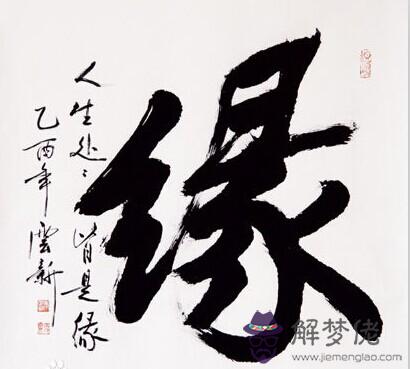 缘
人生处々皆是缘
乙酉年雲新
解梦佬
www.jiemenglao.com